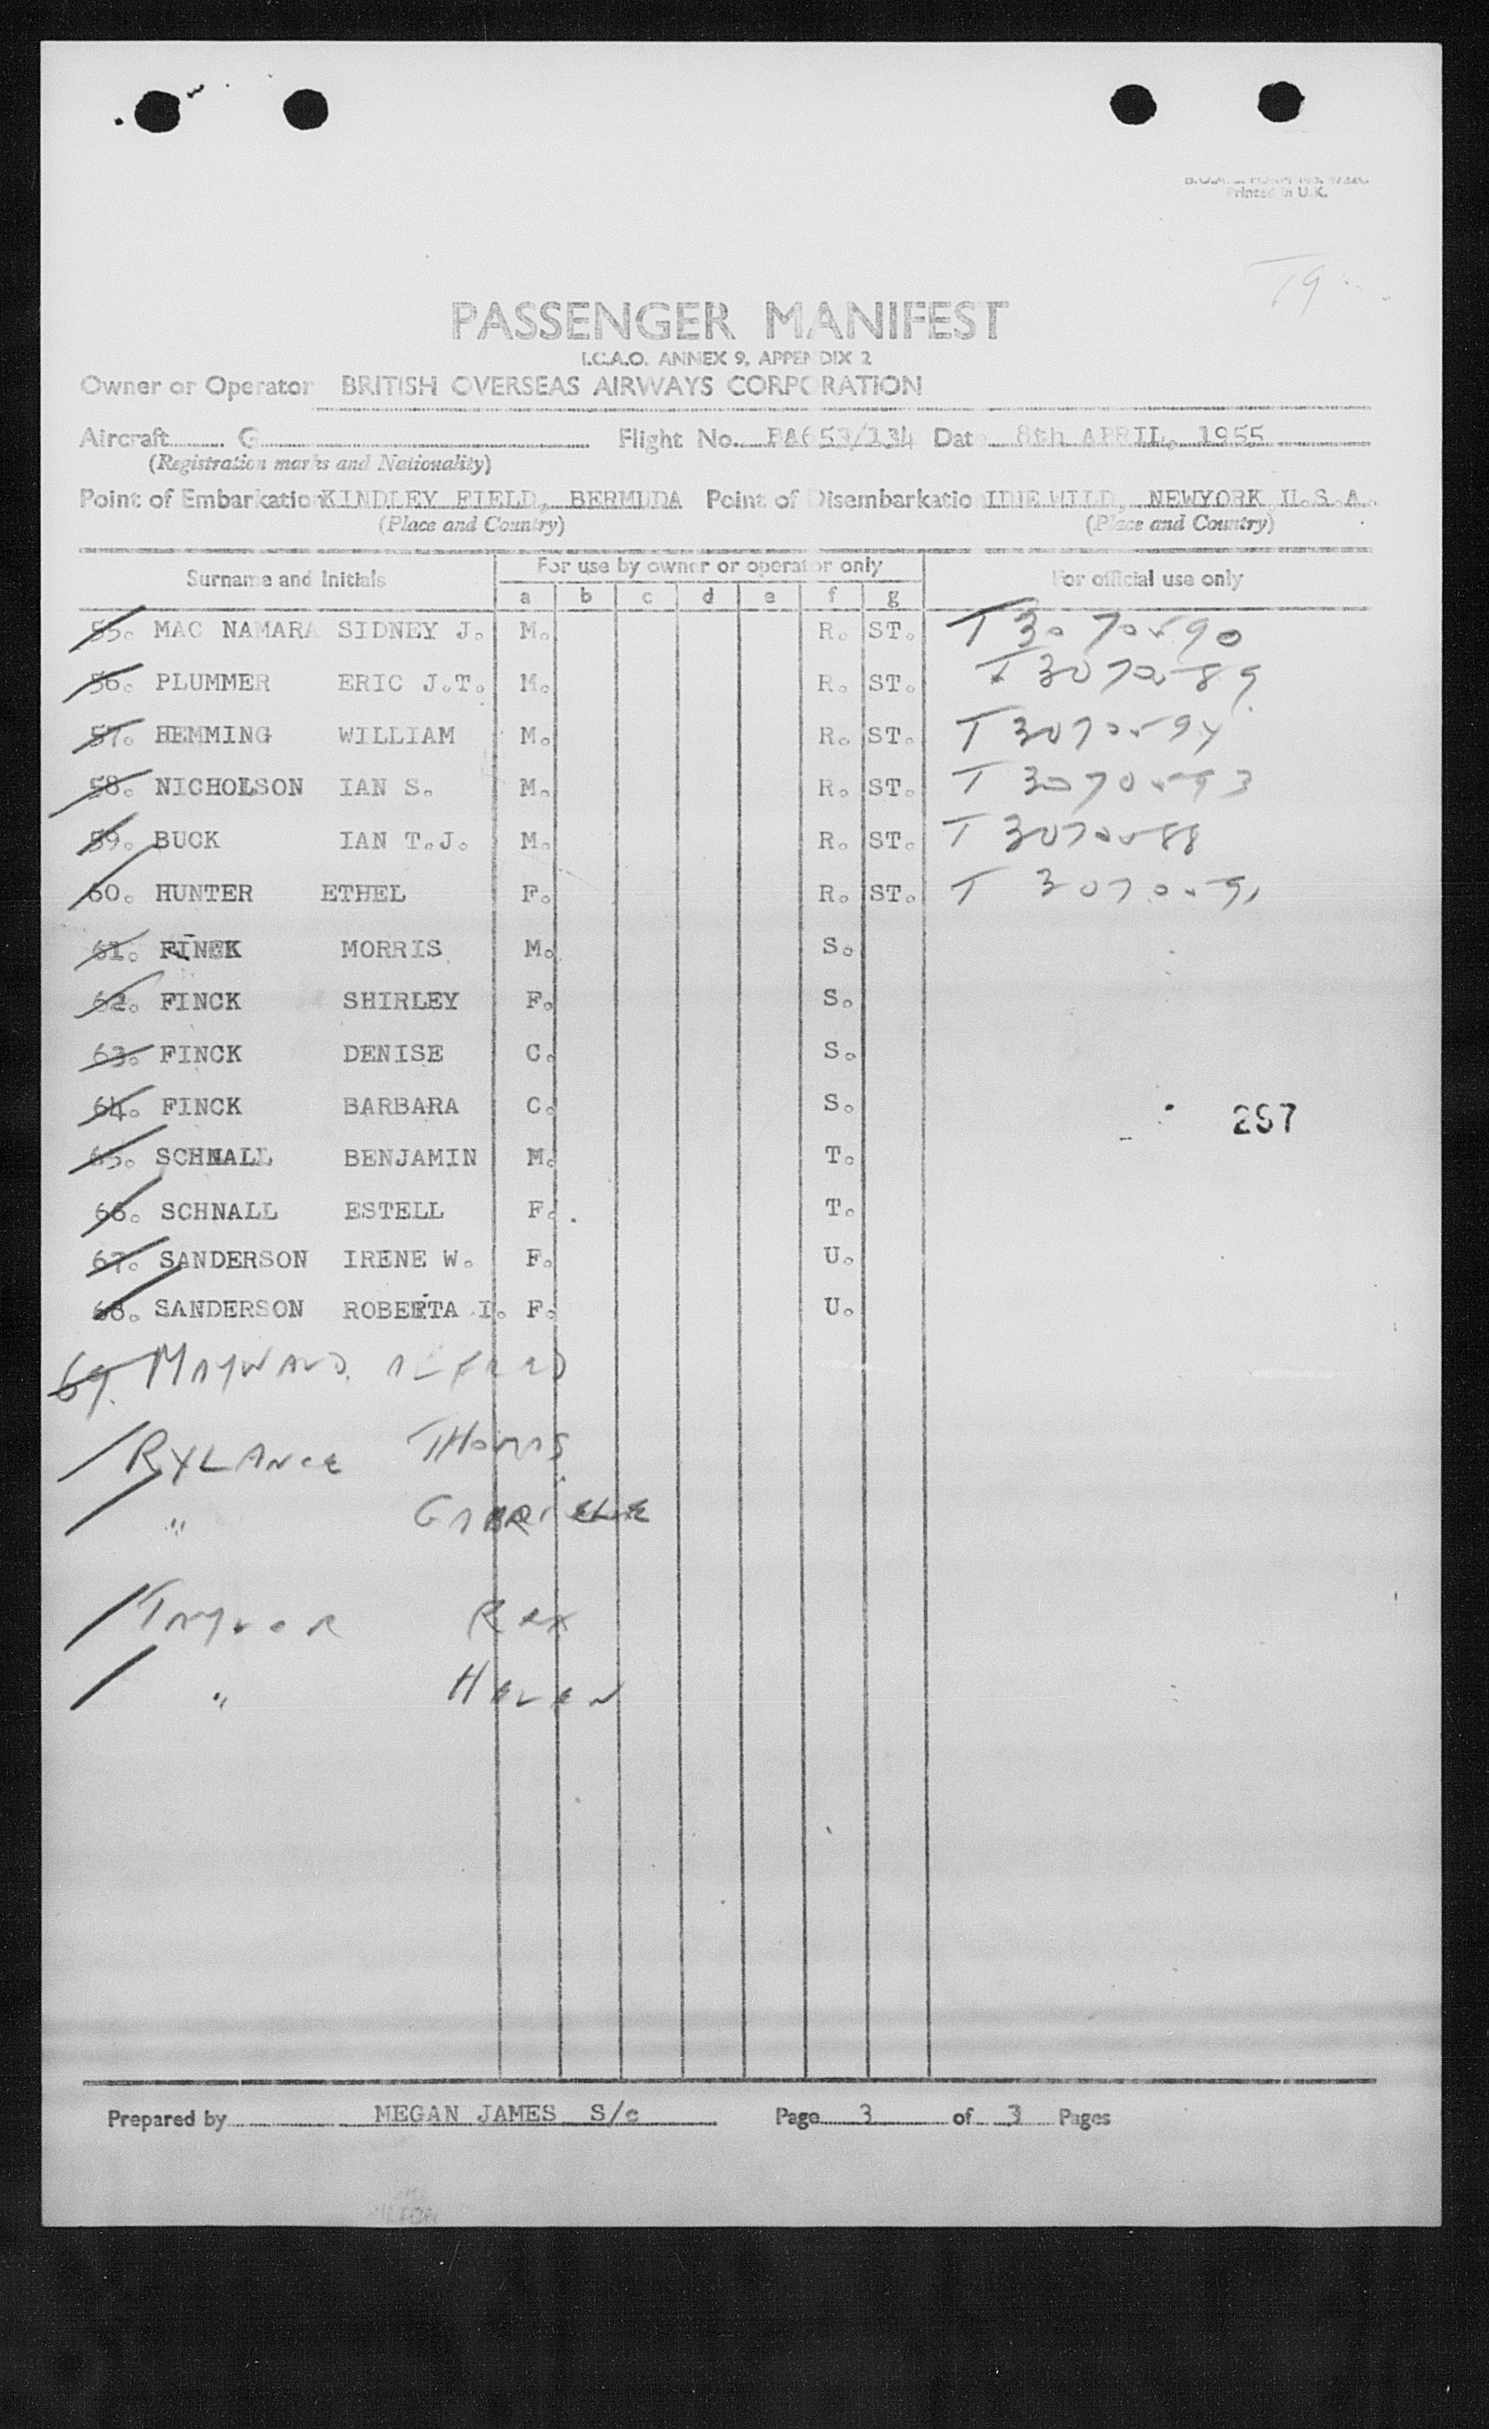 Printed in U.K.
T9
PASSENGER MANIFEST
I.C.A.O. ANNEX 9, APPENDIX 2
Owner or Operator BRITISH OVERSEAS AIRWAYS CORPORATION
Aircraft G Flight No. BA653/134 Date 8th APRIL, 1955
(Registration marks and Nationality)
Point of Embarkation KINDLEY FIELD, BERMUDA Point of Disembarkation IDLEWILD, NEWYORK U.S.A.
(Place and Country) (Place and Country)
Surname and Initials For use by owner or operator only For official use only
a b c d e f g
55. MAC NAMARA SIDNEY J. M. R. ST. T 3070590
56. PLUMMER ERIC J.T. M. R. ST. T 3070589
57. HEMMING WILLIAM M. R. ST. T 3070594
58. NICHOLSON IAN S. M. R. ST. T 3070593
59. BUCK IAN T.J. M. R. ST. T 3070588
60. HUNTER ETHEL F. R. ST. T 3070591
61. FINCK MORRIS M. S.
62. FINCK SHIRLEY F. S.
63. FINCK DENISE C. S.
64. FINCK BARBARA C. S.
257
65. SCHNALL BENJAMIN M. T.
66. SCHNALL ESTELL F. T.
67. SANDERSON IRENE W. F. U.
68. SANDERSON ROBERTA I. F. U.
69. MAYWARD ALFRED
RYLANCE THOMAS
" GABRIELLE
TAYLOR REX
" HELEN
Prepared by MEGAN JAMES S/c Page 3 of 3 Pages